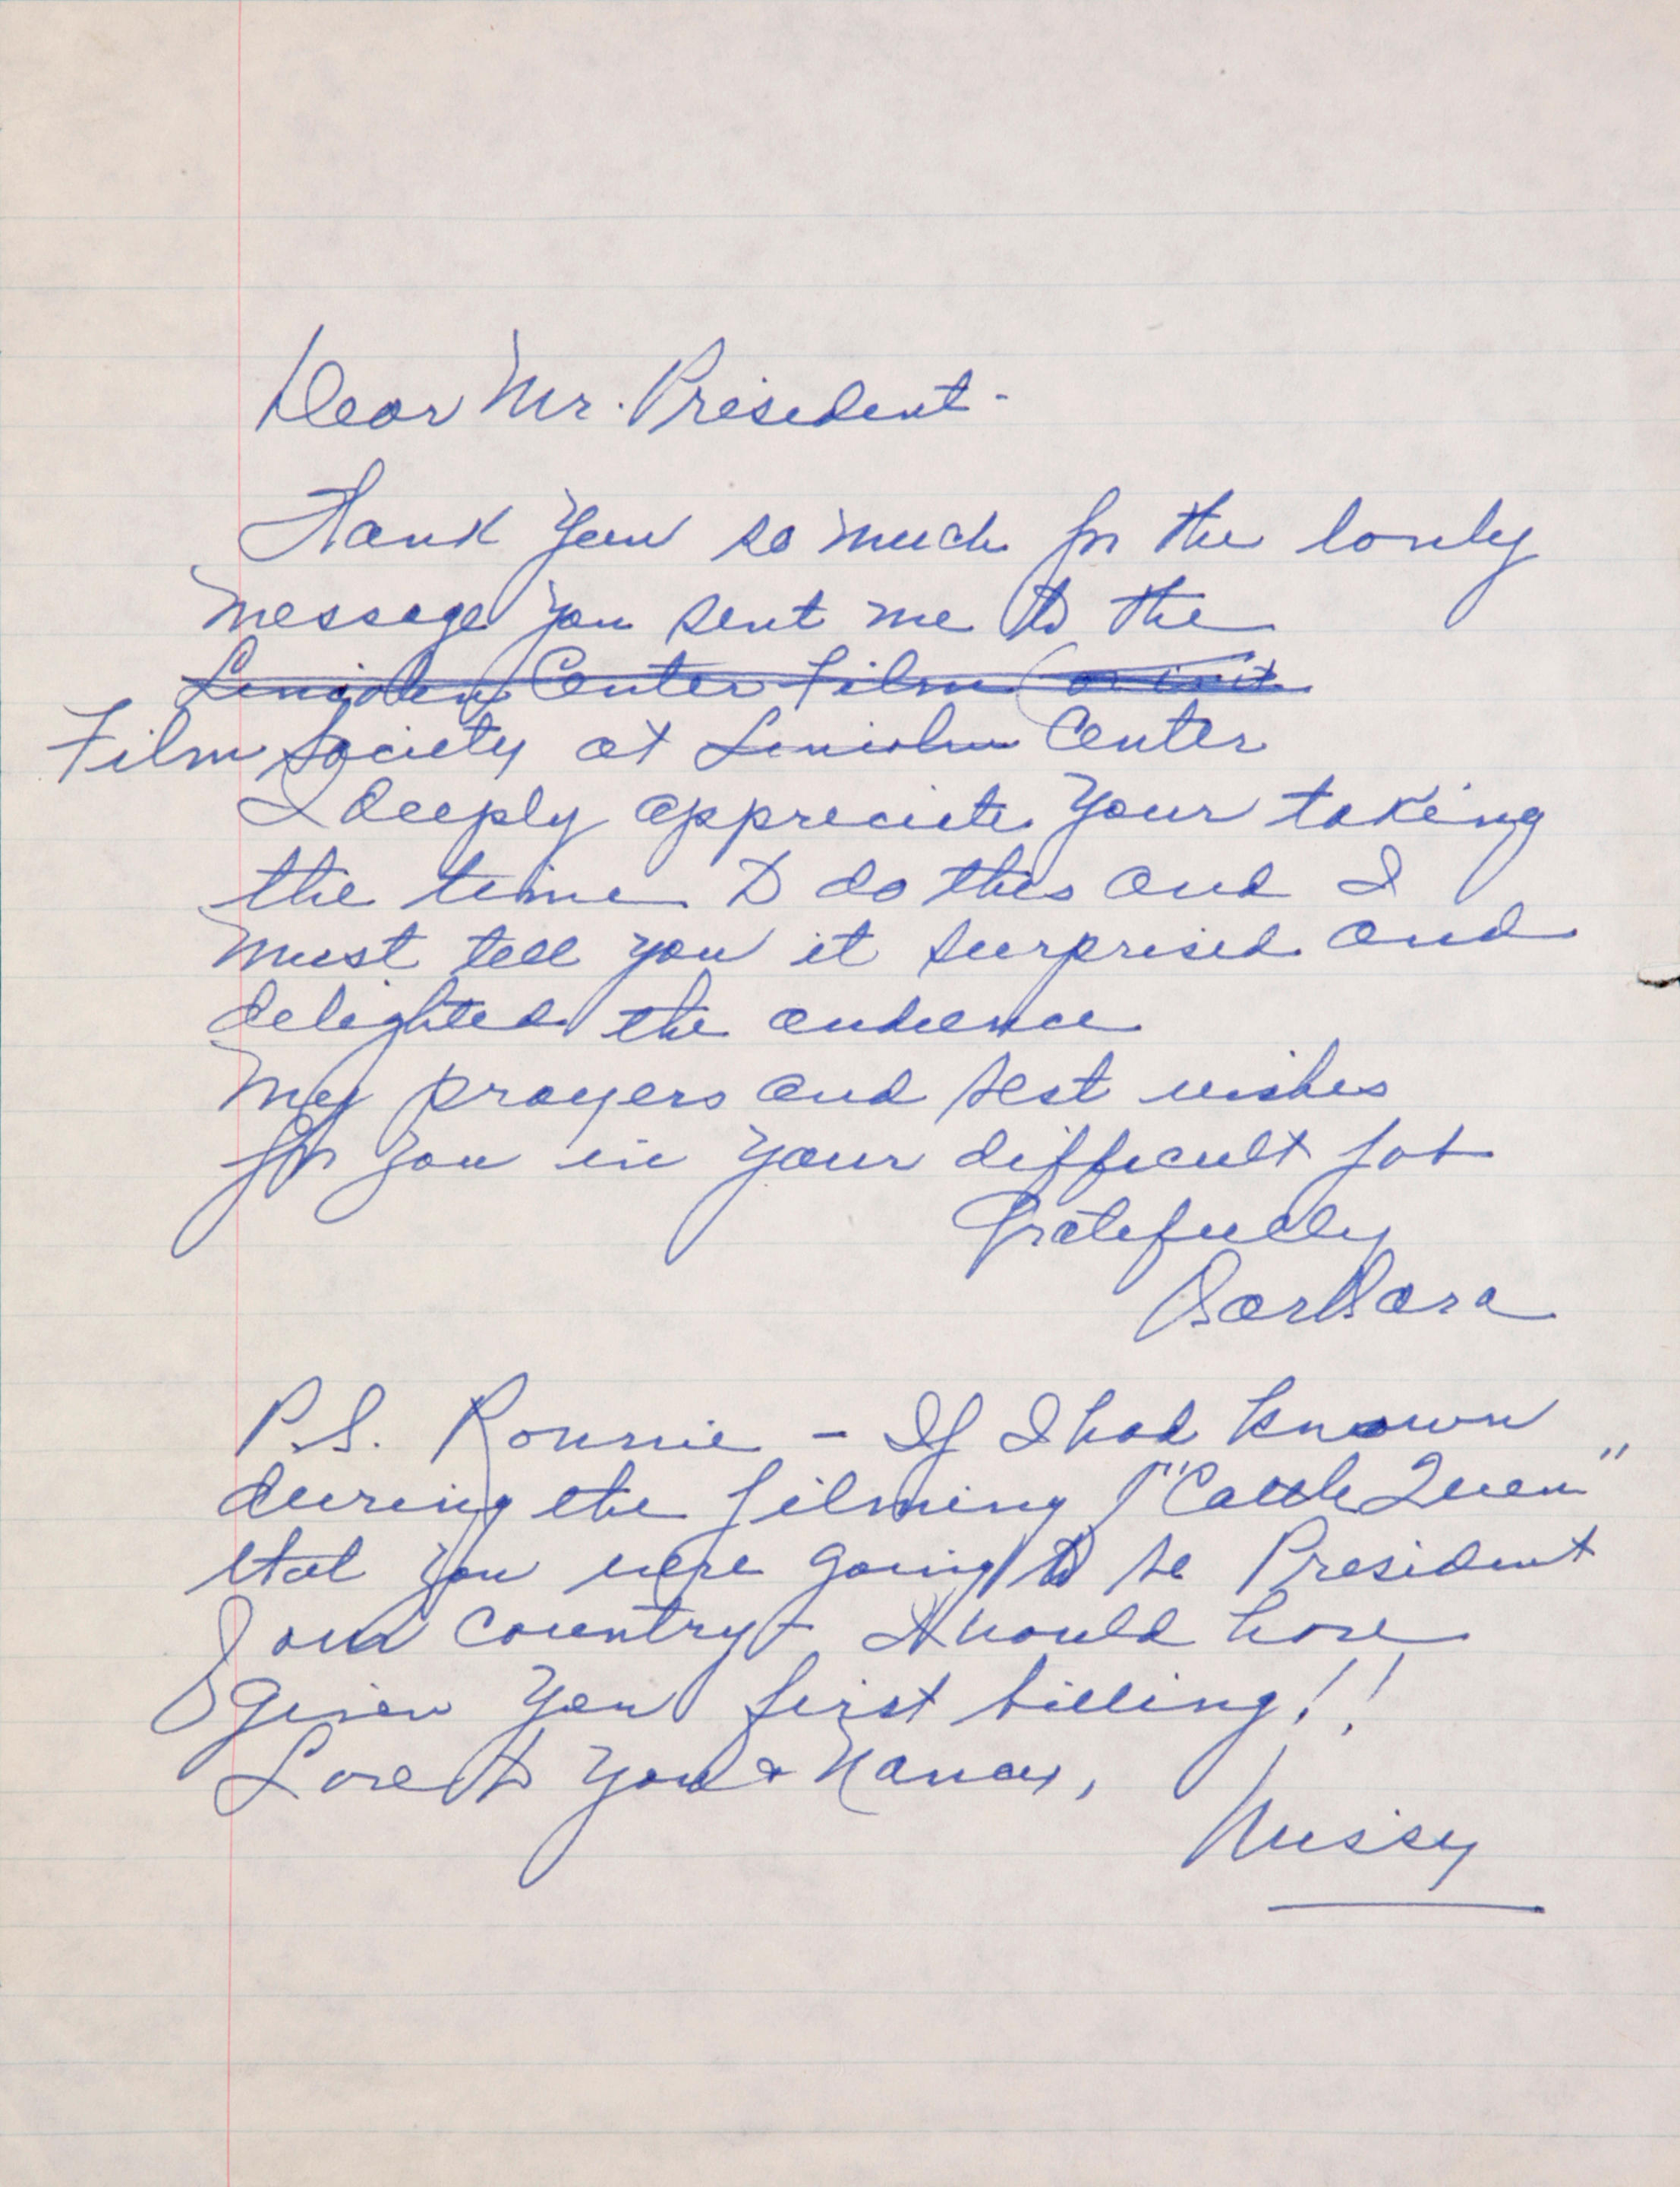 Dear Mr. President -
Thank you so much for the lovely
message you sent me to the
Lincoln Center Film
Film Society at Lincoln Center
I deeply appreciate your taking
the time to do this and I
must tell you it surprised and
delighted the audience
My prayers and best wishes
for you in your difficult job
Gratefully
Barbara
P.S. Ronnie - If I had known
during the filming of "Cattle Queen"
that you were going to be President
of our country - I would have
given you first billing!!
Love to you & Nancy,
Missy